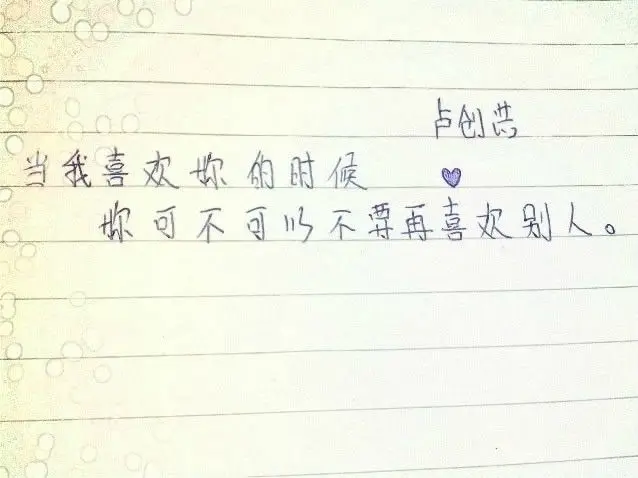 卢创浩
当我喜欢妳的时候
妳可不可以不要再喜欢别人。